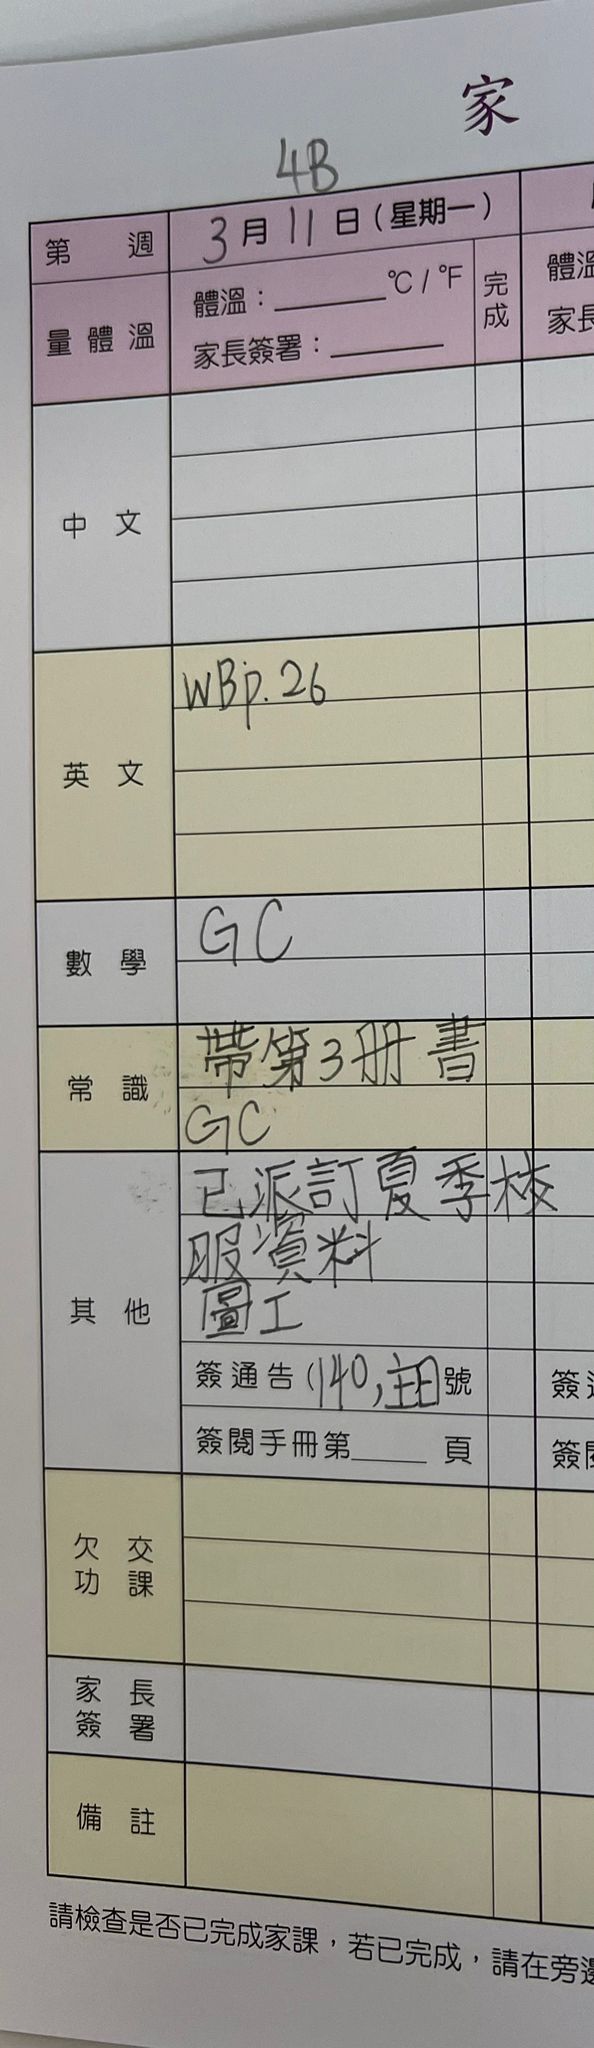 家
4B
第 週 3月11日(星期一)
量體溫 體溫：______°C / °F 完成 體溫
家長簽署：______ 家長
中文
英文 WBp.26
數學 GC
常識 帶第3冊書
GC
其他 已派訂夏季校
服資料
圖工
簽通告(140,主日號
簽閱手冊第____頁 簽閱
欠交功課
家長簽署
備註
請檢查是否已完成家課，若已完成，請在旁邊